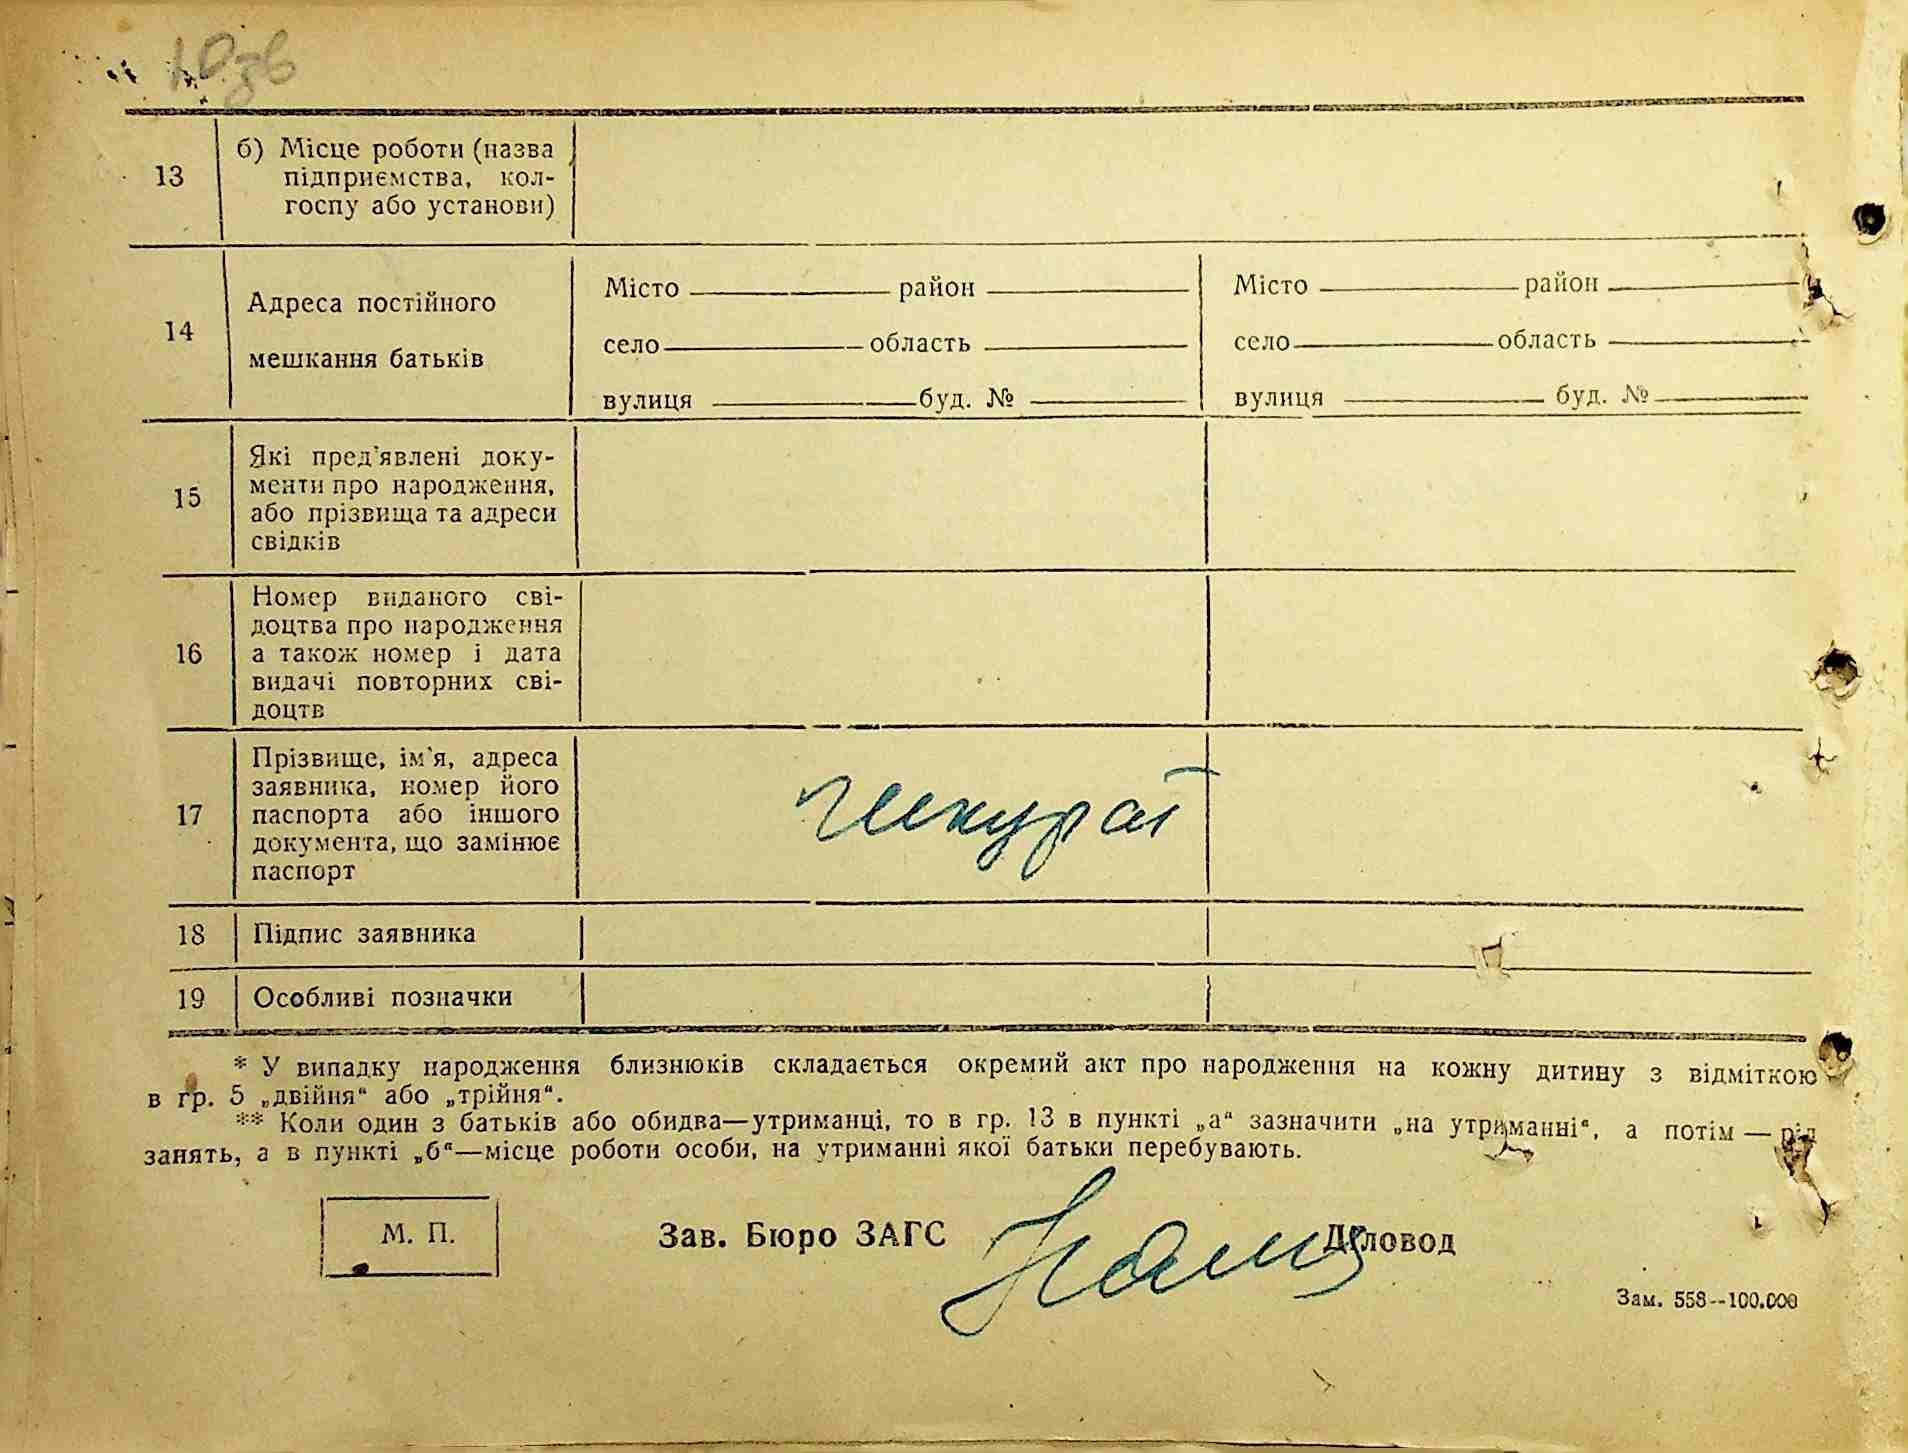 10зв
13
б) Місце роботи (назва
підприємства, кол-
госпу або установи)
14
Адреса постійного
мешкання батьків
Місто район
село область
вулиця буд. №
Місто район
село область
вулиця буд. №
15
Які пред'явлені доку-
менти про народження,
або прізвища та адреси
свідків
16
Номер виданого сві-
доцтва про народження
а також номер і дата
видачі повторних сві-
доцтв
17
Прізвище, ім'я, адреса
заявника, номер його
паспорта або іншого
документа, що замінює
паспорт
18
Підпис заявника
19
Особливі позначки
* У випадку народження близнюків складається окремий акт про народження на кожну дитину з відміткою
в гр. 5 „двійня“ або „трійня“.
** Коли один з батьків або обидва—утриманці, то в гр. 13 в пункті „а“ зазначити „на утриманні“, а потім — рід
занять, а в пункті „б“—місце роботи особи, на утриманні якої батьки перебувають.
М. П.
Зав. Бюро ЗАГС
Діловод
Зам. 558--100.000